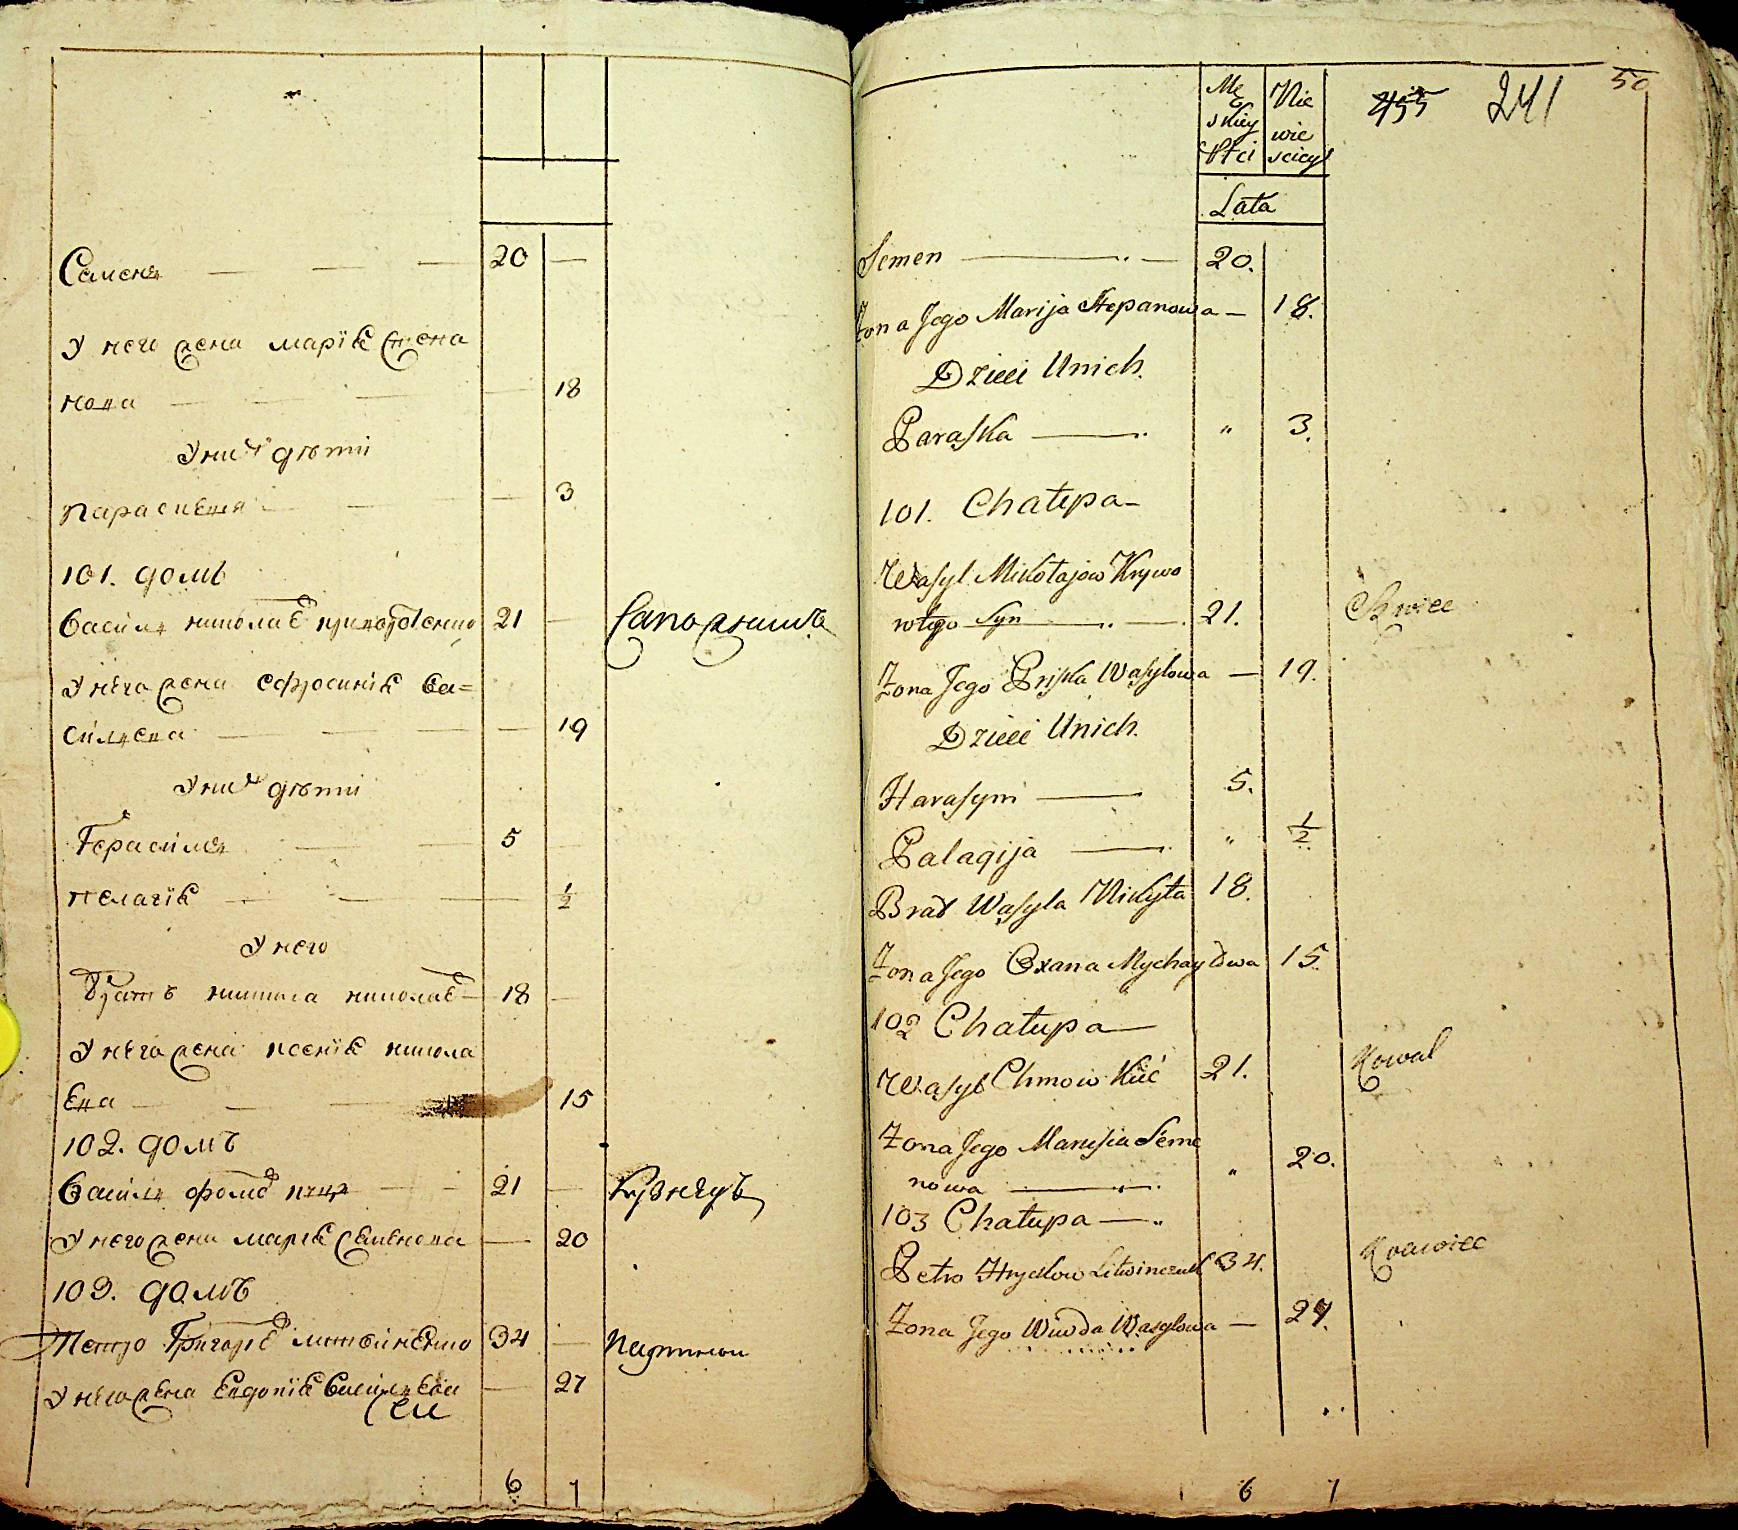 Семенъ — — — 20 —
У него жена марія степа
нова — — — — 18
У нихъ дѣти
параскевія — — — 3
101. домъ
Василь николаевъ 21 — Сапожникъ
У него жена ефросинія ва=
сильева — — — — 19
У нихъ дѣти
Герасимъ — — 5
пелагія — — — 1/2
У него
братъ никита николаевъ — 18 —
У него жена ксенія михола
ева — — — 15
102. домъ
Василь фомовъ — — 21 — Кузнецъ
У него жена марія Семенова — 20
103. домъ
Петро Григорьевъ литвиненко 34 — Портной
У него жена Евдокія Васильева — 27
6 7
455 241 50
Mę Nie
skiey wie
Płci sciey
Lata
Semen — — 20.
Zona Jego Marija Stepanowa — 18.
Dzieci Unich.
Paraska — " 3.
101. Chałupa —
Wasyl Mikołajow Krywo
Syn — — 21. Szwiec
Zona Jego Prijska Wasylowa — 19.
Dzieci Unich.
Harasym — 5.
Palagija — " 1/2
Brat Wasyla Nikyta 18.
Zona Jego Oxana Mychayłowa 15.
102 Chałupa —
Wasyl Chmow Kuć 21. Kowal
Zona Jego Marisia Seme
nowa — " 20.
103 Chałupa — "
Petro Hryckow Litwinczuk 34. Krawiec
Zona Jego Wiwda Wasylowa — 27.
6 7